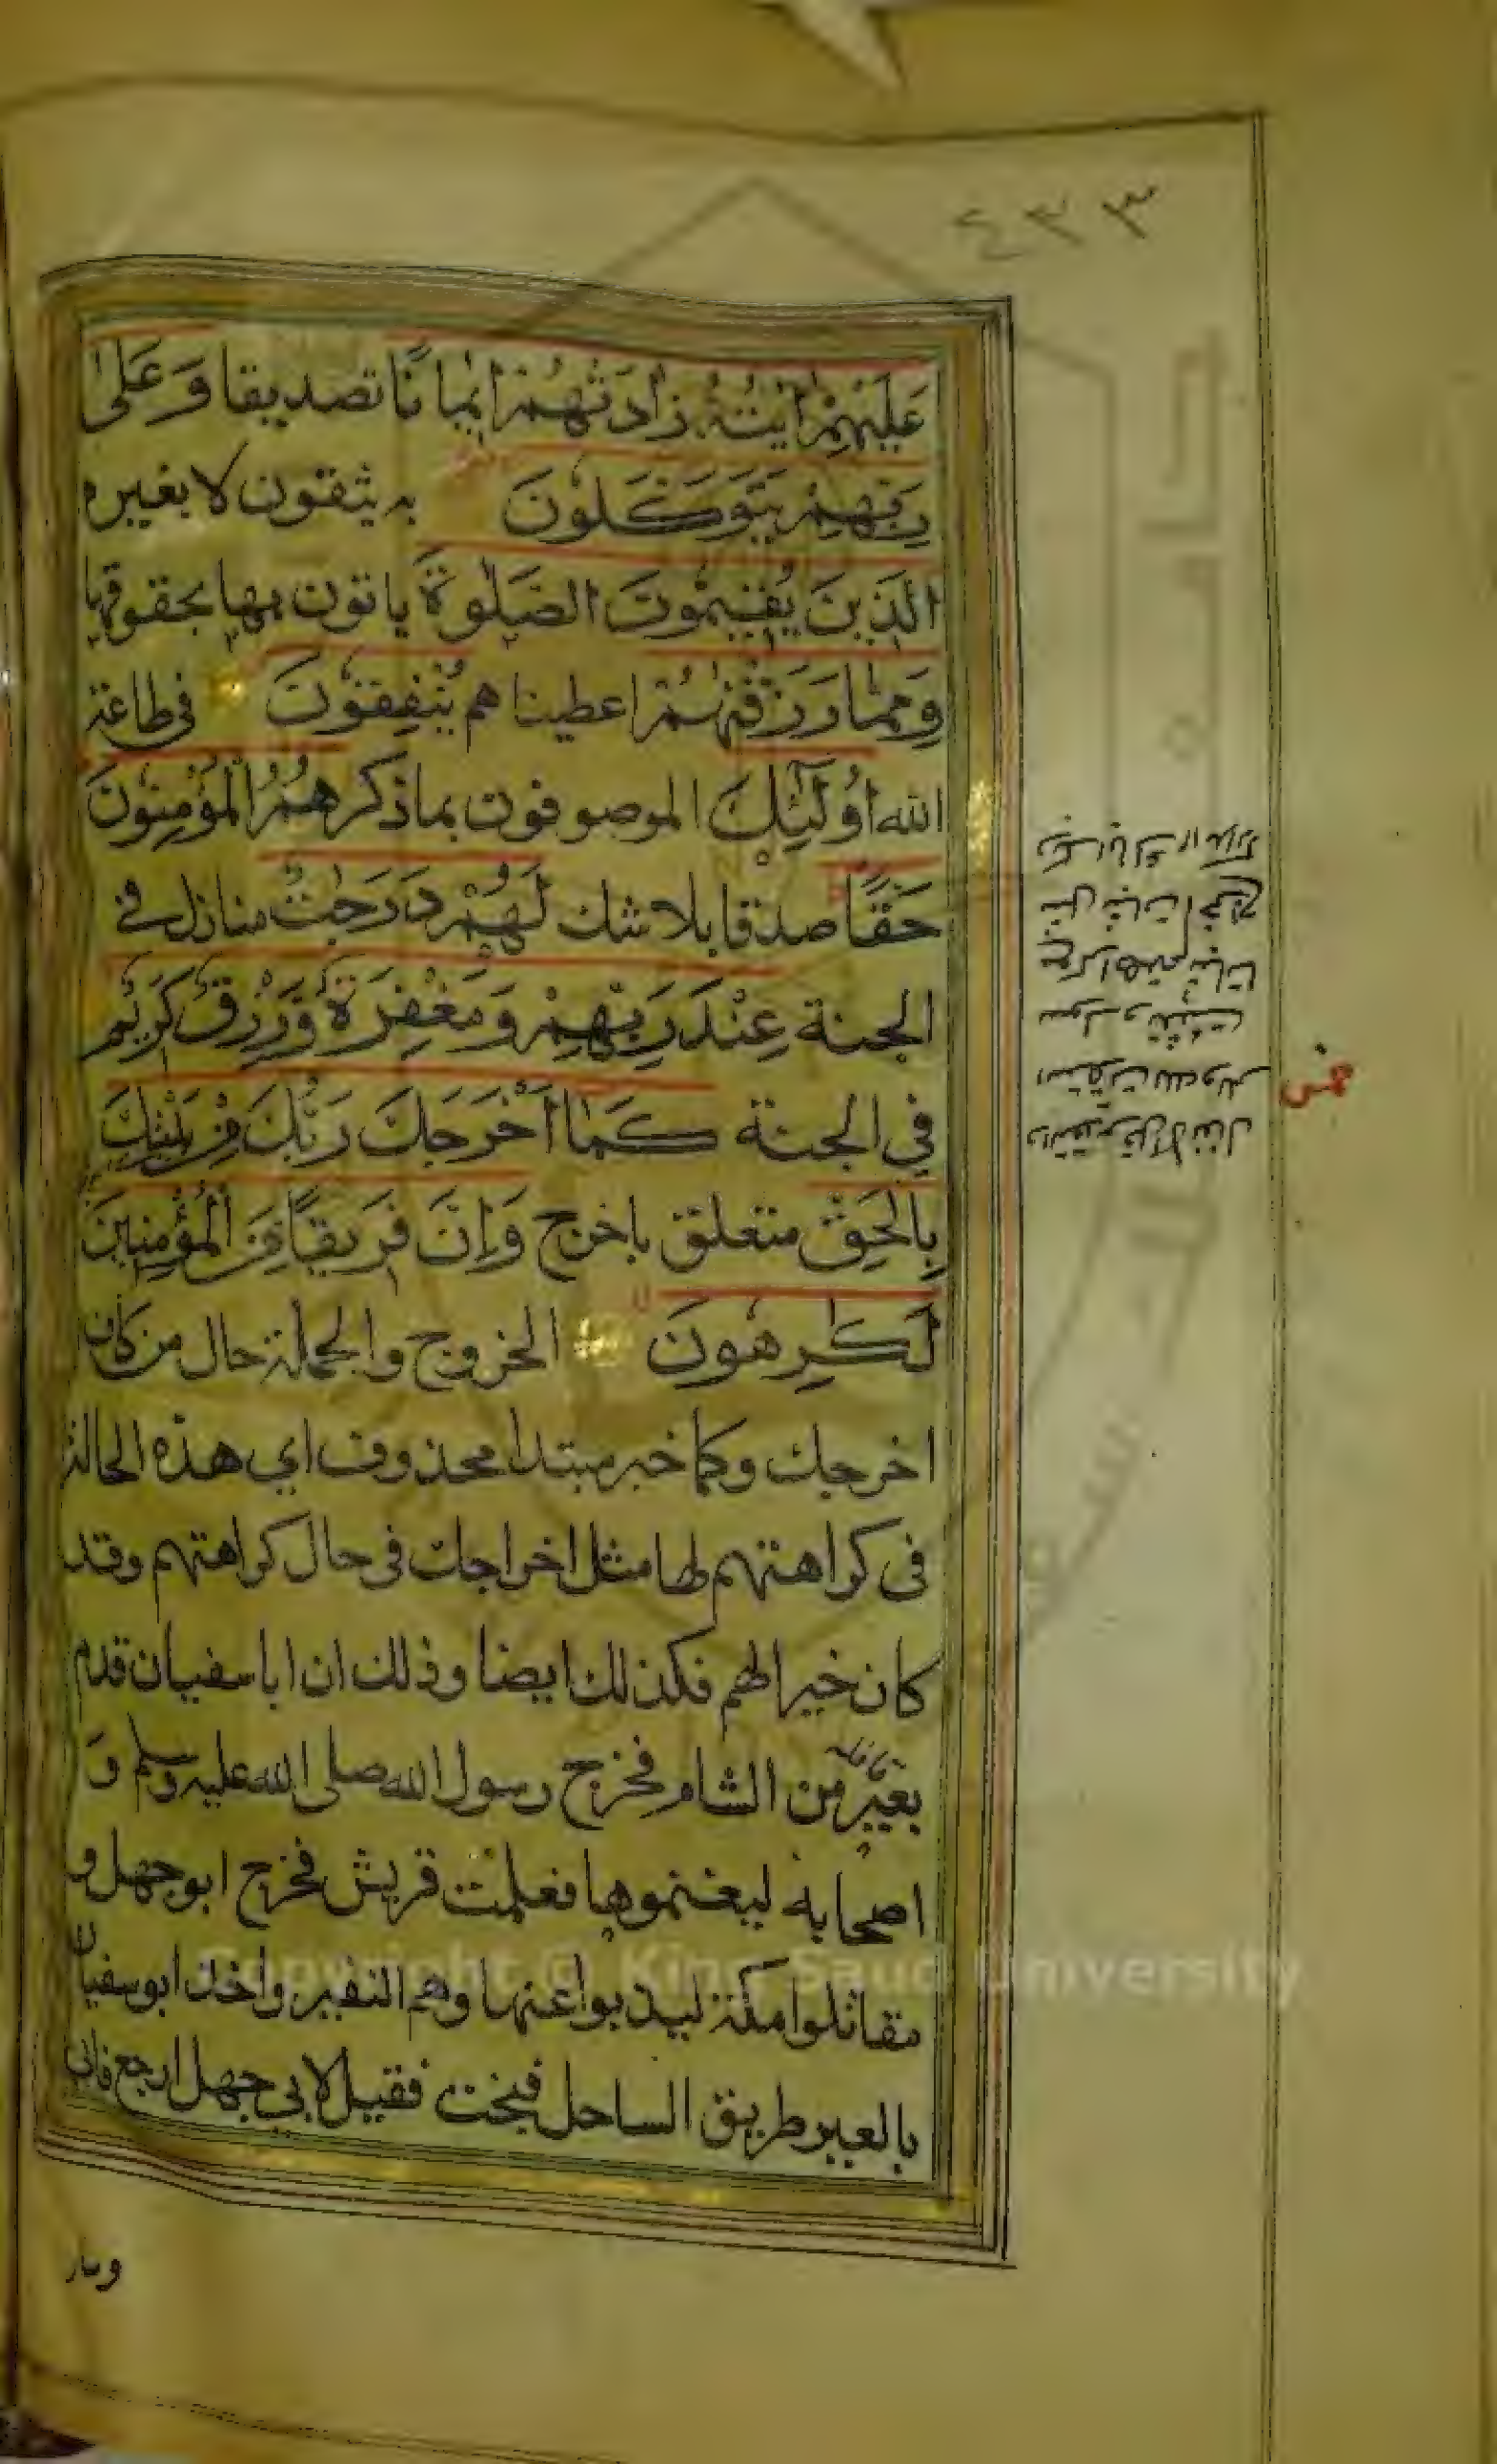 ٤٣٣
عَلَيْهِمْ اٰيٰتُهُ زَادَتْهُمْ اِيْمَانًا تصديقا وَعَلٰى
رَبِّهِمْ يَتَوَكَّلُوْنَ به يثقون لا بغيره
الَّذِيْنَ يُقِيْمُوْنَ الصَّلٰوةَ ياتون بها بحقوقها
وَمِمَّا رَزَقْنٰهُمْ اعطيناهم يُنْفِقُوْنَ فى طاعة
الله اُولٰٓئِكَ الموصوفون بماذكر هُمُ الْمُؤْمِنُوْنَ
حَقًّا صدقا بلا شك لَهُمْ دَرَجٰتٌ منازل فے
الجنة عِنْدَ رَبِّهِمْ وَمَغْفِرَةٌ وَّرِزْقٌ كَرِيْمٌ
في الجنة كَمَا اَخْرَجَكَ رَبُّكَ مِنْ بَيْتِكَ
بِالْحَقِّ متعلق باخرج وَاِنَّ فَرِيْقًا مِّنَ الْمُؤْمِنِيْنَ
لَكٰرِهُوْنَ الخروج والجملة حال من كاف
اخرجك وكما خبر مبتدا محذوف اي هذه الحالة
فى كراهتهم لها مثل اخراجك فى حال كراهتهم وقد
كان خيرا لهم فكذلك ايضا وذلك ان ابا سفيان قدم
بعير من الشام فخرج رسول الله صلى الله عليه وسلم وَ
قافلة
اصحابه ليغنموها فعلمت قريش فخرج ابو جهل و
مقاتلوا مكة ليذبوا عنها وهم النفير واخذ ابو سفيان
بالعير طريق الساحل فنجت فقيل لابى جهل ارجع فابى
Copyright © King Saud University